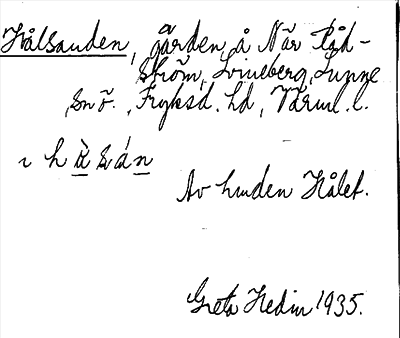 Hålsanden, gården å När Råd-
ström, Lvineberg, Lunne
snö., Fryksd. hd, Värml. l.
ı h ä s á n
Av hmden Hålet.
Greta Hedin 1935.